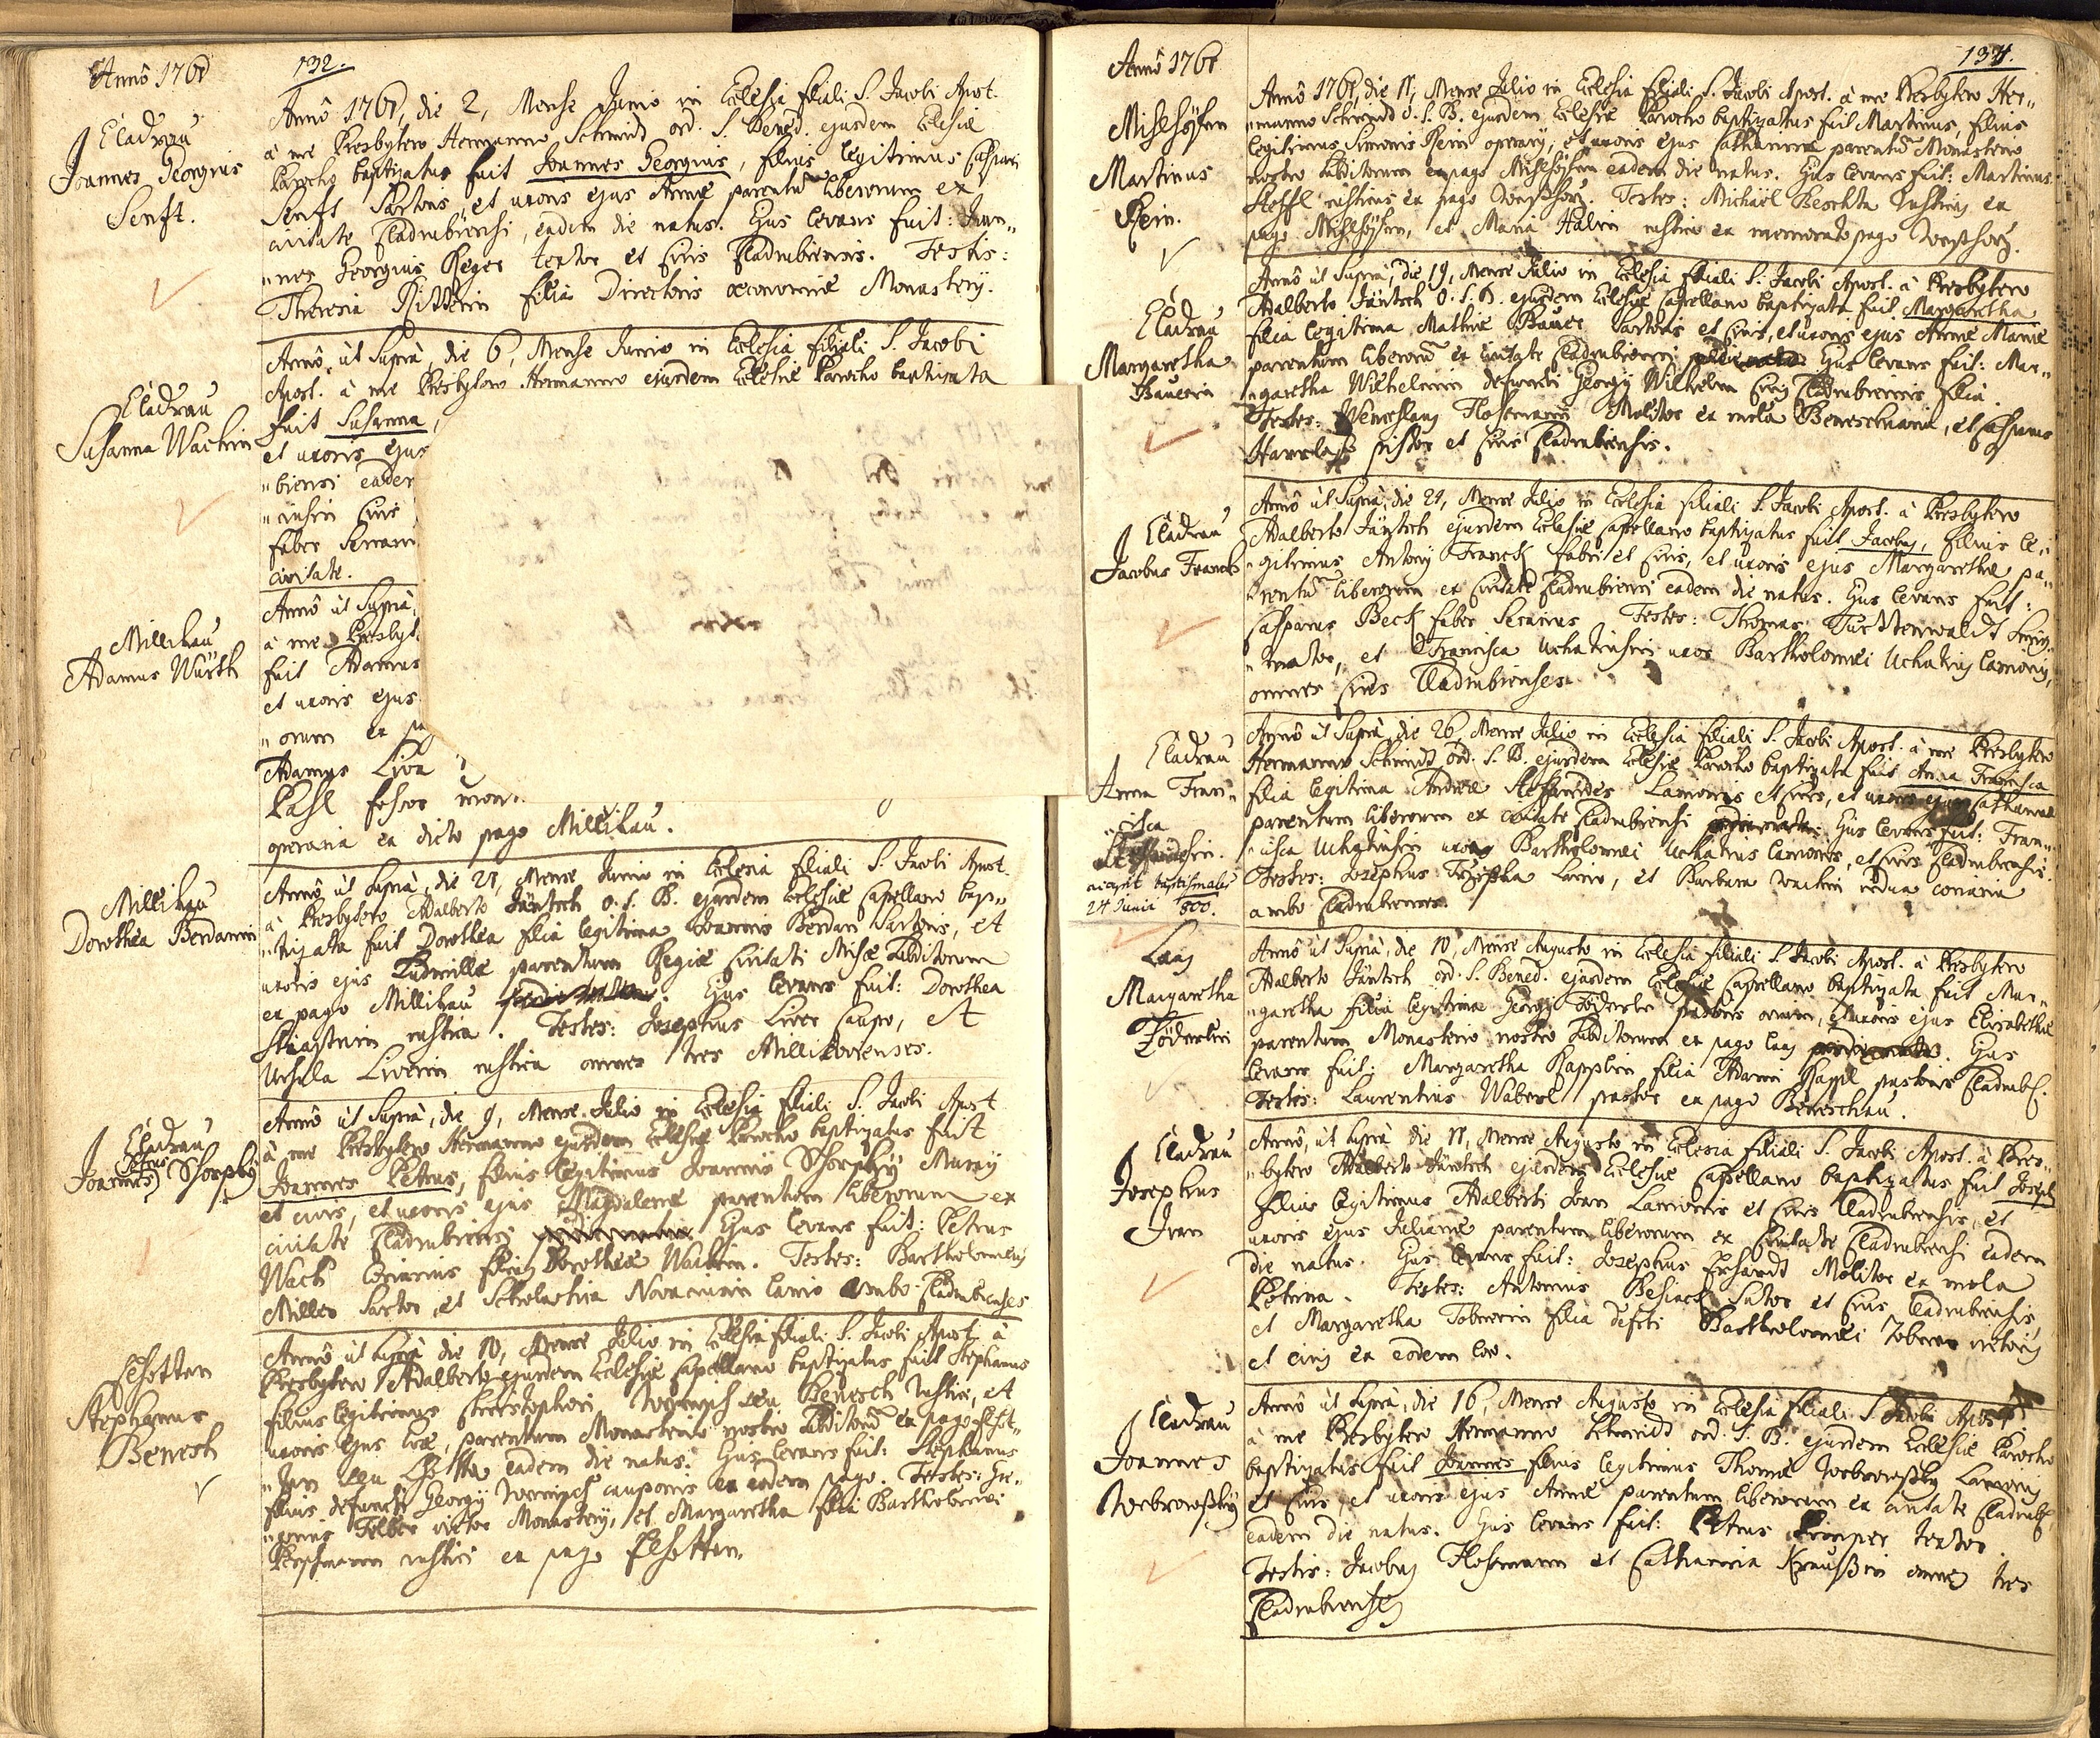 Annô 1761
132.
Cladrau
Joannes Georgius
Senft.
Annô 1761, die 2, Mense Junio in Ecclesia filiali S. Jacobi Apost.
à me Presbytero Hermanno Schmidd ord. S. Bened. ejusdem Eclesiæ
Parocho baptizatus fuit Joannes Georgius, filius legitimus Caspari
Senft Sartoris, et uxoris ejus Annæ parentũ liberorum ex
civitate Cladrubiensi, eadem die natus. Ejus levans fuit: Joan„
„nes Georgius Reger textor et civis Cladrubiensis. Testis:
Theresia Ritterin filia Directoris œconomiæ Monasterij.
Cladrau
Susanna Wachin
Annô ut Suprà, die 6, Mense Junio in Eclesia filiali S. Jacobi
Apost. à me Presbytero Hermanno ejusdem Eclesiæ Parocho baptizata
fuit Susanna,
et uxoris ejus
„biensi eadem
civis
faber Serrari
civitate.
Millikau
Adamus Würth
Annô ut Suprà,
à me Presbyt.
fuit Adamus
et uxoris ejus
„orum ex pa
Adamus
operaria ex dicto pago Millikau.
Millikau
Dorothea Berdanin
Annô ut Suprà, die 21, Mense Junio in Eclesia filiali S. Jacobi Apost.
à Presbytero Adalberto Jäntsch O. S. B. ejusdem Eclesiæ Capellano bap„
„tizata fuit Dorothea filia legitima Joannis Berdan Sartoris, et
uxoris ejus Ludmillæ parentum Regiæ Civitati Misæ subditorum
ex pago Millikau. Ejus levans fuit: Dorothea
rustica. Testes: Josephus Liver Caupo, et
Ursula Liverin rustica omnes tres Millikovienses.
Cladrau
Joannes Petrus Schorpky
Annô ut Suprà, die 9, Mense Julio in Eclesia filiali S. Jacobi Apost.
à me Presbytero Hermanno ejusdem Eclesiæ Parocho baptizatus fuit
Joannes Petrus, filius legitimus Joannis Schorpky
et civis, et uxoris ejus Magdalenæ parentum liberorum ex
civitate Cladrubiensi. Ejus levans fuit: Petrus
Wach filius Dorotheæ Wachin. Testes: Bartholomeus
Miller Sartor, et Scholastica ambo Cladrubienses
Elhotten
Stephanus
Benesch
Annô ut Suprà die 10, Mense Julio in Eclesia filiali S. Jacobi Apost. à
Presbytero Adalberto ejusdem Eclesiæ Capellano baptizatus fuit Stephanus
filius legitimus Christophori seu Benesch rustici, et
uxoris ejus Evæ, parentum Monasterio nostro subditorũ ex pago Elhot„
„ten seu Lhotta eadem die natus. Ejus levans fuit: Stephanus
filius defuncti Georgij cauponis ex eodem pago. Testes:
Felber Monasterij, et Margaretha filia Bartholomæi
rustici ex pago Elhotten.
Annô 1761
134.
Mihlhöfen
Martinus
Rein.
Annô 1761, die 11, Mense Julio in Eclesia filiali S. Jacobi Apost. à me Presbytero Her„
„manno Schmidd O. S. B. ejusdem Eclesiæ Parocho baptizatus fuit Martinus, filius
legitimus Simonis Rein operarij, et uxoris ejus Catharinæ parentũ Monasterio
nostro subditorum ex pago Mihlhöfen eadem die natus. Ejus levans fuit: Martinus
rusticus ex pago. Testes: Michael Beschta rusticus ex
pago Mihlhöfen, et Maria rustica ex memorato pago
Cladrau
Margaretha
Bauerin
Annô ut Suprà, die 19, Mense Julio in Eclesia filiali S. Jacobi Apost. à Presbytero
Adalberto Jäntsch O. S. B. ejusdem Eclesiæ Capellano baptizata fuit Margaretha
filia legitima Mathiæ Bauer Sartoris et civis, et uxoris ejus Annæ Mariæ
parentum liberorũ ex civitate Cladrubiensi. Ejus levans fuit: Mar„
„garetha Wilhelmin defuncti Georgij Wilhelm civis Cladrubiensis filia.
Testes: Wenceslaus Hoffmann Molitor ex mola, et Casparus
pistor et civis Cladrubiensis.
Cladrau
Jacobus Franck
Annô ut Suprà, die 21, Mense Julio in Eclesia filiali S. Jacobi Apost. à Presbytero
Adalberto Jäntsch ejusdem Eclesiæ Capellano baptizatus fuit Jacobus, filius le„
„gitimus Antonij Franck fabri et civis, et uxoris ejus Margarethæ pa„
„rentũ liberorum ex civitate Cladrubiensi eadem die natus. Ejus levans fuit:
Casparus Beck faber Serarius. Testes: Thomas
„mator, et Francisca Uchatiusin uxor Bartholomæi Uchatius Lanionis,
omnes cives Cladrubienses.
Cladrau
Anna Fran„
„cisca
24 Junii 800.
Annô ut Suprà, die 26, Mense Julio in Eclesia filiali S. Jacobi Apost. à me Presbytero
Hermanno Schmidt ord. S. B. ejusdem Eclesiæ Parocho baptizata fuit Anna Francisca
filia legitima Andreæ Lanionis et civis, et uxoris ejus Catharinæ
parentum liberorum ex civitate Cladrubiensi. Ejus levans fuit: Fran„
„cisca Uchatiusin uxor Bartholomæi Uchatius Lanionis, et civis Cladrubiensis.
Testes: Josephus Lanio, et Barbara Wachin vidua
ambo Cladrubienses.
Laas
Margaretha
Föderlin
Annô ut Suprà, die 10, Mense Augusto in Eclesia filiali S. Jacobi Apost. à Presbytero
Adalberto Jäntsch ord. S. Bened. ejusdem Eclesiæ Capellano baptizata fuit Mar„
„garetha filia legitima Georgij Föderle pastoris ovium, et uxoris ejus Elisabethæ
parentum Monasterio nostro subditorum ex pago Laas. Ejus
levans fuit: Margaretha Rapplin filia Adami Rappl pastoris Cladrub.
Testis: Laurentius Waberl pastor ex pago Beneschau.
Cladrau
Josephus
Iran
Annô, ut Suprà die 11, Mense Augusto in Eclesia filiali S. Jacobi Apost. à Pres„
„bytero Adalberto Jäntsch ejusdem Eclesiæ Capellano baptizatus fuit Joseph
filius legitimus Adalberti Iran Lanionis et civis Cladrubiensis, et
uxoris ejus Julianæ parentum liberorum ex civitate Cladrubiensi eadem
die natus. Ejus levans fuit: Josephus Erhardt Molitor ex mola
Testes: Antonius Sutor et civis Cladrubiensis,
et Margaretha Toberin filia defcti Bartholomæi
et civis ex eodem loco.
Cladrau
Joannes
Annô ut Suprà, die 16, Mense Augusto in Eclesia filiali S. Jacobi Apost
à me Presbytero Hermanno Schmidd ord. S. B. ejusdem Eclesiæ Parocho
baptizatus fuit Joannes filius legitimus Thomæ Lanionis
et civis, et uxoris ejus Annæ parentum liberorum ex civitate Cladrub.
eadem die natus. Ejus levans fuit: Petrus textor.
Testes: Jacobus Hoffmann et Catharina Kraußin omnes tres
Cladrubienses